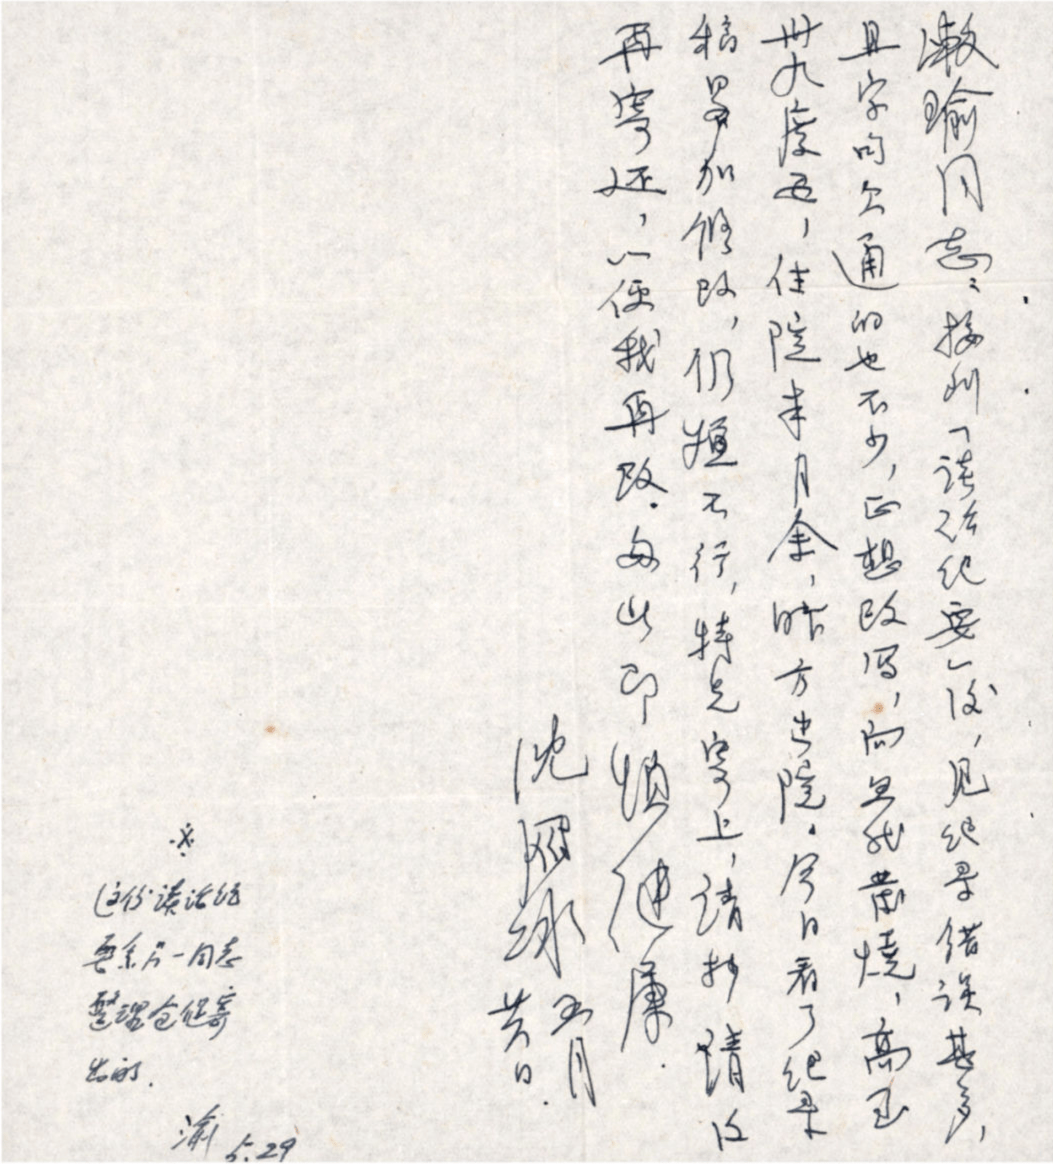 漱瑜同志：接到「谈话纪要」后，见纪录错误甚多，
且字句欠通的也不少，正想改写，而血我发烧，高至
卅九度西，住院半月余，昨方出院。今日看了纪录
稿略加修改，仍恒不行，特先寄上，请抄清后
再寄还，以便我再改。匆此即 颂健康．
沈
五月
廿日．
※
这份谈话纪
要系另一同志
整理仓促寄
出的．
渝 5.29